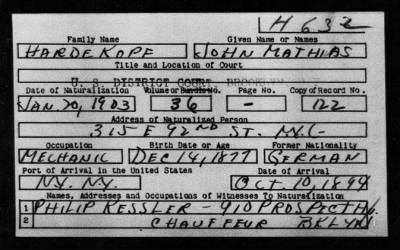 H 632
Family Name Given Name or Names
HARDEKOPF JOHN MATHIAS
Title and Location of Court
U. S. DISTRICT COURT, BROOKLYN
Date of Naturalization Volume or Bundle No. Page No. Copy of Record No.
JAN. 20, 1903 36 - 122
Address of Naturalized Person
315 E 92ND ST. N.Y.C.
Occupation Birth Date or Age Former Nationality
MECHANIC DEC 14, 1877 GERMAN
Port of Arrival in the United States Date of Arrival
N.Y. N.Y. OCT. 10, 1894
Names, Addresses and Occupations of Witnesses To Naturalization
1 PHILIP KESSLER - 410 PROSPECT
2 CHAUFFEUR BKLYN